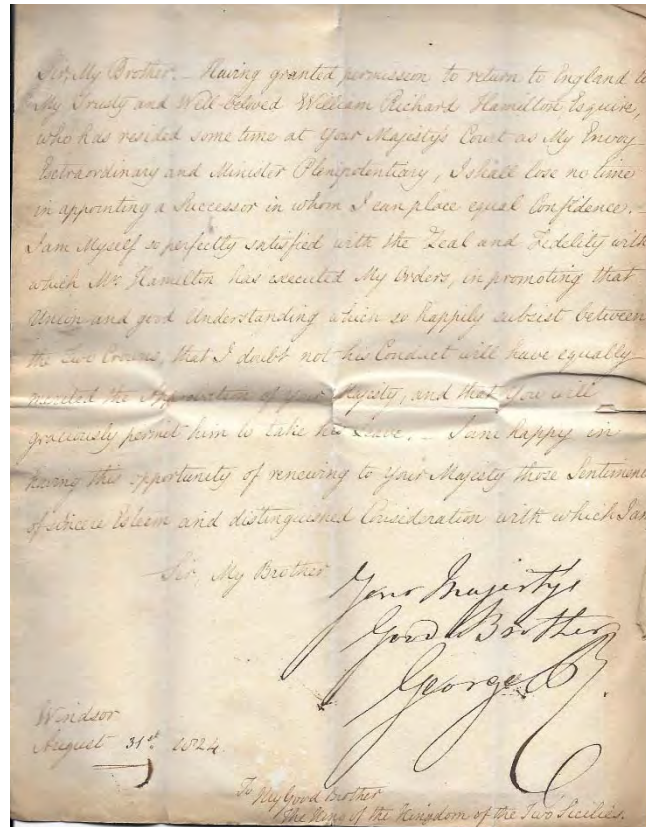 Sir, My Brother. – Having granted permission to return to England to
My Trusty and Well-beloved William Richard Hamilton Esquire,
who has resided some time at Your Majesty's Court as My Envoy
Extraordinary and Minister Plenipotentiary, I shall lose no time
in appointing a Successor in whom I can place equal Confidence. –
I am Myself so perfectly satisfied with the Zeal and Fidelity with
which Mr. Hamilton has executed My Orders, in promoting that
Union and good Understanding which so happily subsist between
the Two Crowns, that I doubt not his Conduct will have equally
merited the Approbation of Your Majesty, and that You will
graciously permit him to take his Leave. – I am happy in
having this opportunity of renewing to Your Majesty those Sentiments
of sincere Esteem and distinguished Consideration with which I am
Sir, My Brother
Your Majesty's
Good Brother
George R.
Windsor
August 31st. 1824.
To My Good Brother
The King of the Kingdom of the Two Sicilies.